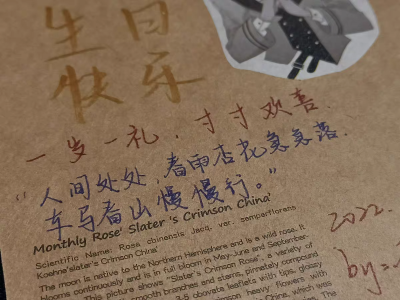 生日
快乐
一岁一礼，寸寸欢喜.
“人间处处，春雨杏花急急落.
车马春山慢慢行。”
Monthly Rose' Slater 's Crimson China'
Scientific Name: Rosa chinensis Jacq. ver. semperflorens
Koehne'slater's Crimson China'
The moon is native to the Northern Hemisphere and is a wild rose. It
blooms continuously and is in full bloom in May-June and September.
This picture shows "Slater's Crimson Rose", a variety of
smooth branches and sparse, pinnately compound
3-5 obovate leaflets with tips, glossy
heavy flowers with
China, which was
2022.
by: